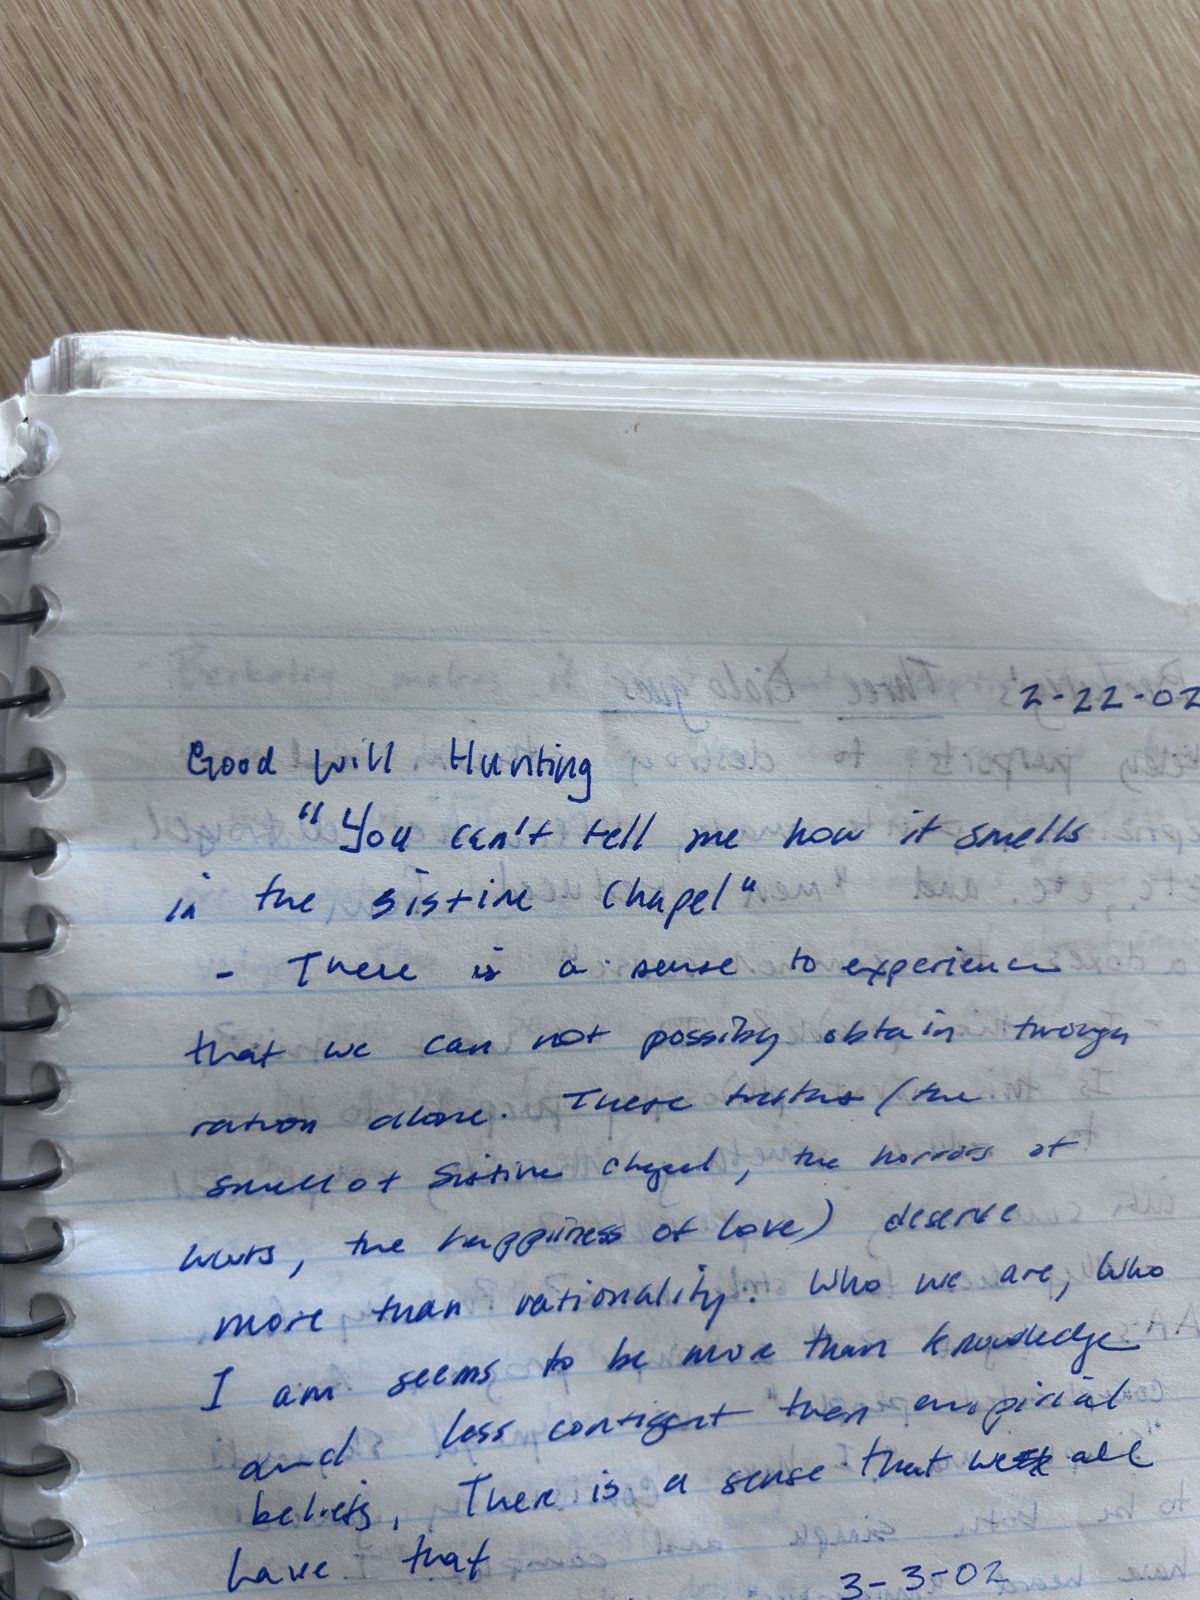 2-22-02
Good Will Hunting
"You can't tell me how it smells
in the Sistine Chapel"
- There is a sense to experience
that we can not possibly obtain through
ration alone. These truths (the
smell of Sistine Chapel, the horrors of
wars, the happiness of love) deserve
more than rationality. Who we are, who
I am seems to be more than knowledge
and less contigent then empirial
beliefs. There is a sense that we all
have that
3-3-02